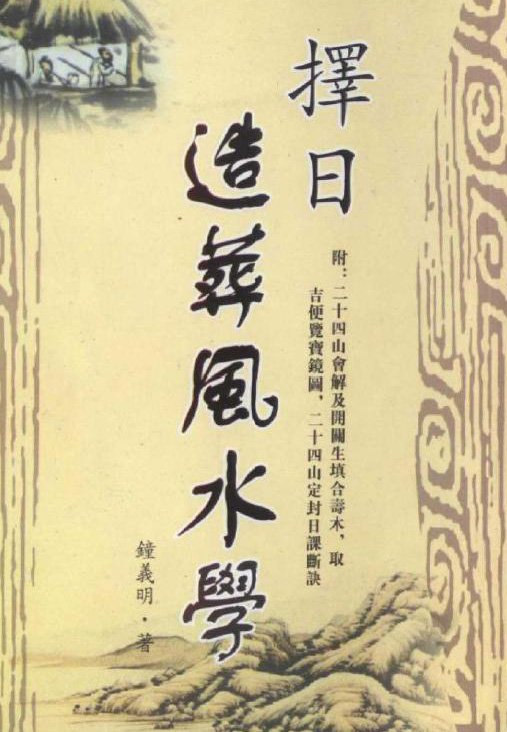 擇日
造葬風水學
附：二十四山會解及開關生填合壽木，取
吉便覽寶鏡圖，二十四山定封日課斷訣
鐘義明·著